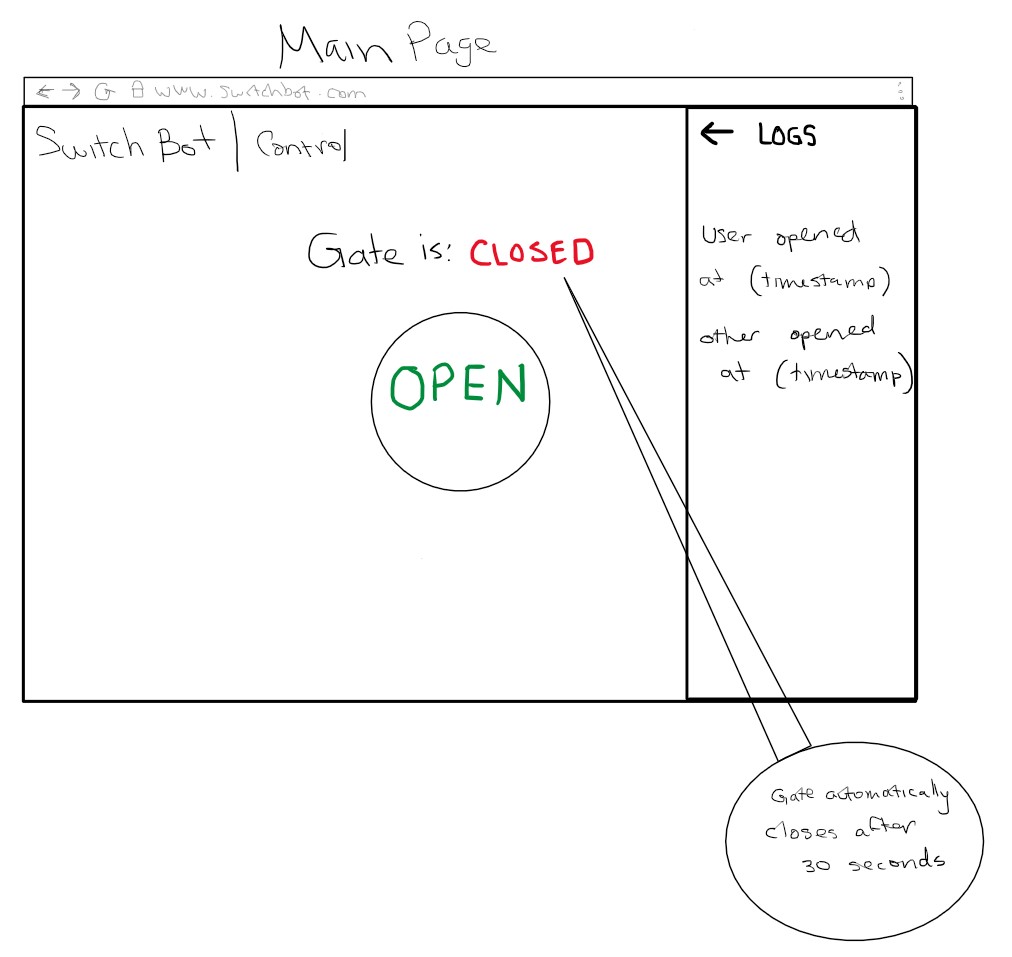 Main Page
www.switchbot.com
Switch Bot | Control
← LOGS
Gate is: CLOSED
OPEN
User opened
at (timestamp)
other opened
at (timestamp)
Gate automatically
closes after
30 seconds